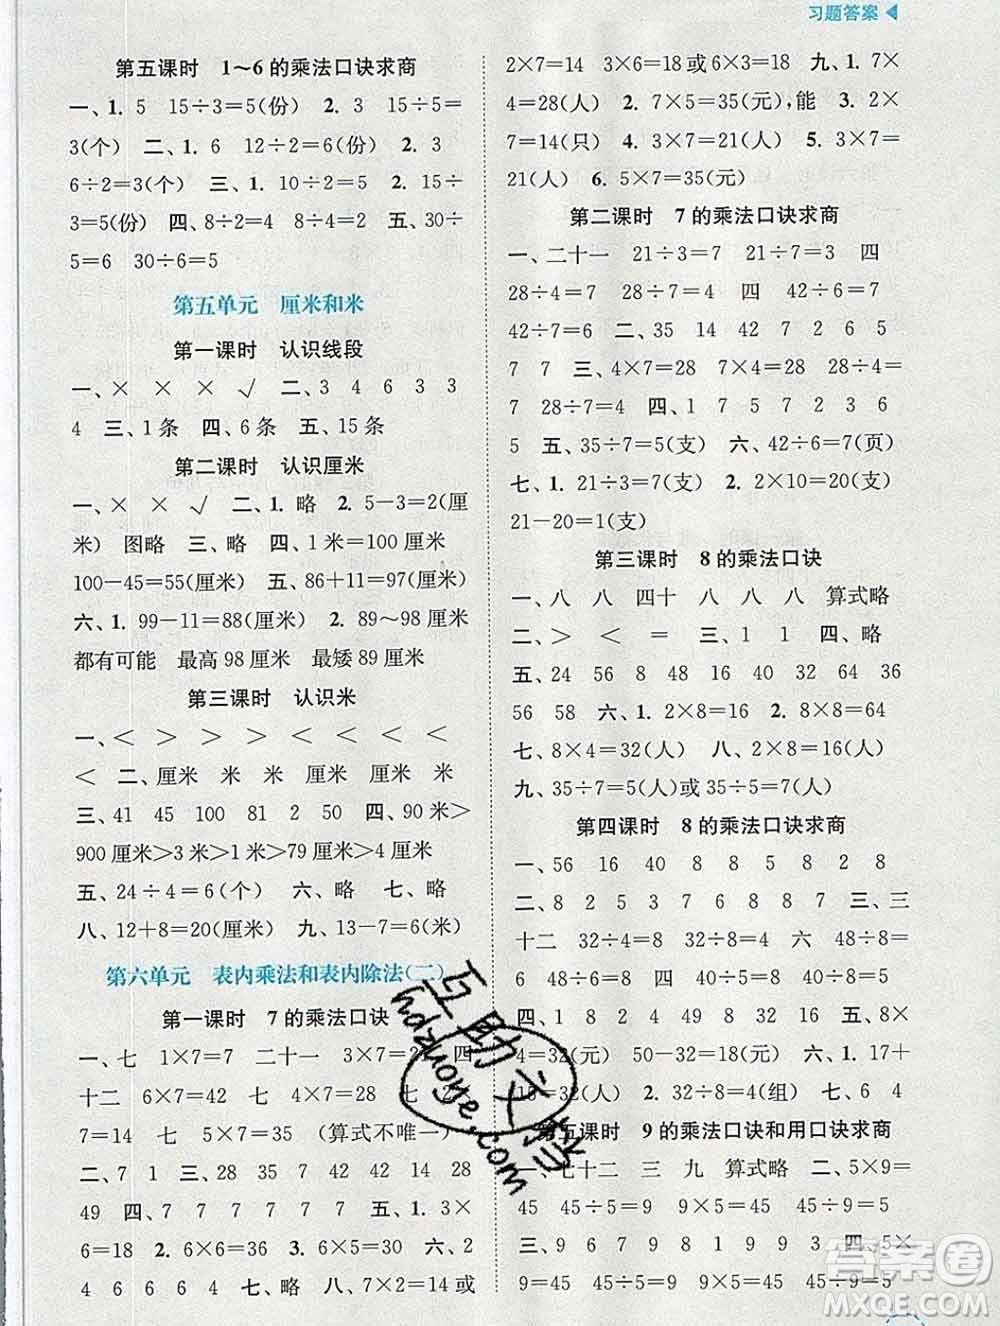 习题答案
第五课时 1～6的乘法口诀求商
一、1. 5 15÷3=5(份) 2. 3 15÷5=
3(个) 二、1. 6 12÷2=6(份) 2. 3
6÷2=3(个) 三、1. 10÷2=5 2. 15÷
3=5(份) 四、8÷2=4 8÷4=2 五、30÷
5=6 30÷6=5
第五单元 厘米和米
第一课时 认识线段
一、× × × √ 二、3 4 6 3 3
4 三、1条 四、6条 五、15条
第二课时 认识厘米
一、× × √ 二、1. 略 2. 5－3=2(厘
米) 图略 三、略 四、1米=100厘米
100－45=55(厘米) 五、86+11=97(厘米)
六、1. 99－11=88(厘米) 2. 89～98厘米
都有可能 最高98厘米 最矮89厘米
第三课时 认识米
一、< > > > < < < <
< 二、厘米 米 米 厘米 厘米 米
三、41 45 100 81 2 50 四、90米>
900厘米>3米>1米>79厘米>64厘米
五、24÷4=6(个) 六、略 七、略
八、12+8=20(厘米) 九、13－7=6(米)
第六单元 表内乘法和表内除法(二)
第一课时 7的乘法口诀
一、七 1×7=7 二十一 3×7=21 四
十二 6×7=42 七 4×7=28 七 2×
7=14 七 5×7=35 (算式不唯一)
二、7 1 三、28 35 42 14 28
49 四、7 7 7 7 7 7 五、1. 3×
6=18 2. 6×6=36 3. 6×5=30 六、2
4 6 6 4 七、略 八、7×2=14或
2×7=14 3×6=18或6×3=18 九、1. 7×
4=28(人) 2. 7×5=35(元),能 3. 2×
7=14(只) 4. 7×3=21(人) 5. 3×7=
21(人) 6. 5×7=35(元)
第二课时 7的乘法口诀求商
一、二十一 21÷3=7 21÷7=3 四
28÷4=7 28÷7=4 四 42÷6=7
42÷7=6 二、35 14 42 7 7 7
7 7 三、4×7=28 7×4=28 28÷4=
7 28÷7=4 四、1 7 5 7 2 3 6
5 五、35÷7=5(支) 六、42÷6=7(页)
七、1. 21÷3=7(支) 2. 2×10=20(支)
21－20=1(支)
第三课时 8的乘法口诀
一、八 八 四十 八 八 八 算式略
二、> < = 三、1 1 四、略
五、24 56 48 32 64 24 64 36
56 58 六、1. 2×8=16 2. 8×8=64
七、8×4=32(人) 八、2×8=16(人)
九、35÷7=5(人)或35÷5=7(人)
第四课时 8的乘法口诀求商
一、56 16 40 8 8 5 8 2 8
二、8 2 5 3 7 6 8 8 7 三、三
十二 32÷4=8 32÷8=4 56 56÷
8=7 56÷7=8 48 48÷6=8 48÷8=6
四、1 8 2 4 49 8 32 五、8×
4=32(元) 50－32=18(元) 六、1. 17+
15=32(人) 2. 32÷8=4(组) 七、6 4
第五课时 9的乘法口诀和用口诀求商
一、七十二 三 九 算式略 二、5×9=
45 45÷5=9 9×5=45 45÷9=5
三、9 6 7 9 8 1 9 9 3 四、5×
9=45 9×5=45 45÷5=9 45÷9=5
互助文档
hdzuoye.com
答案圈
MXQE.COM